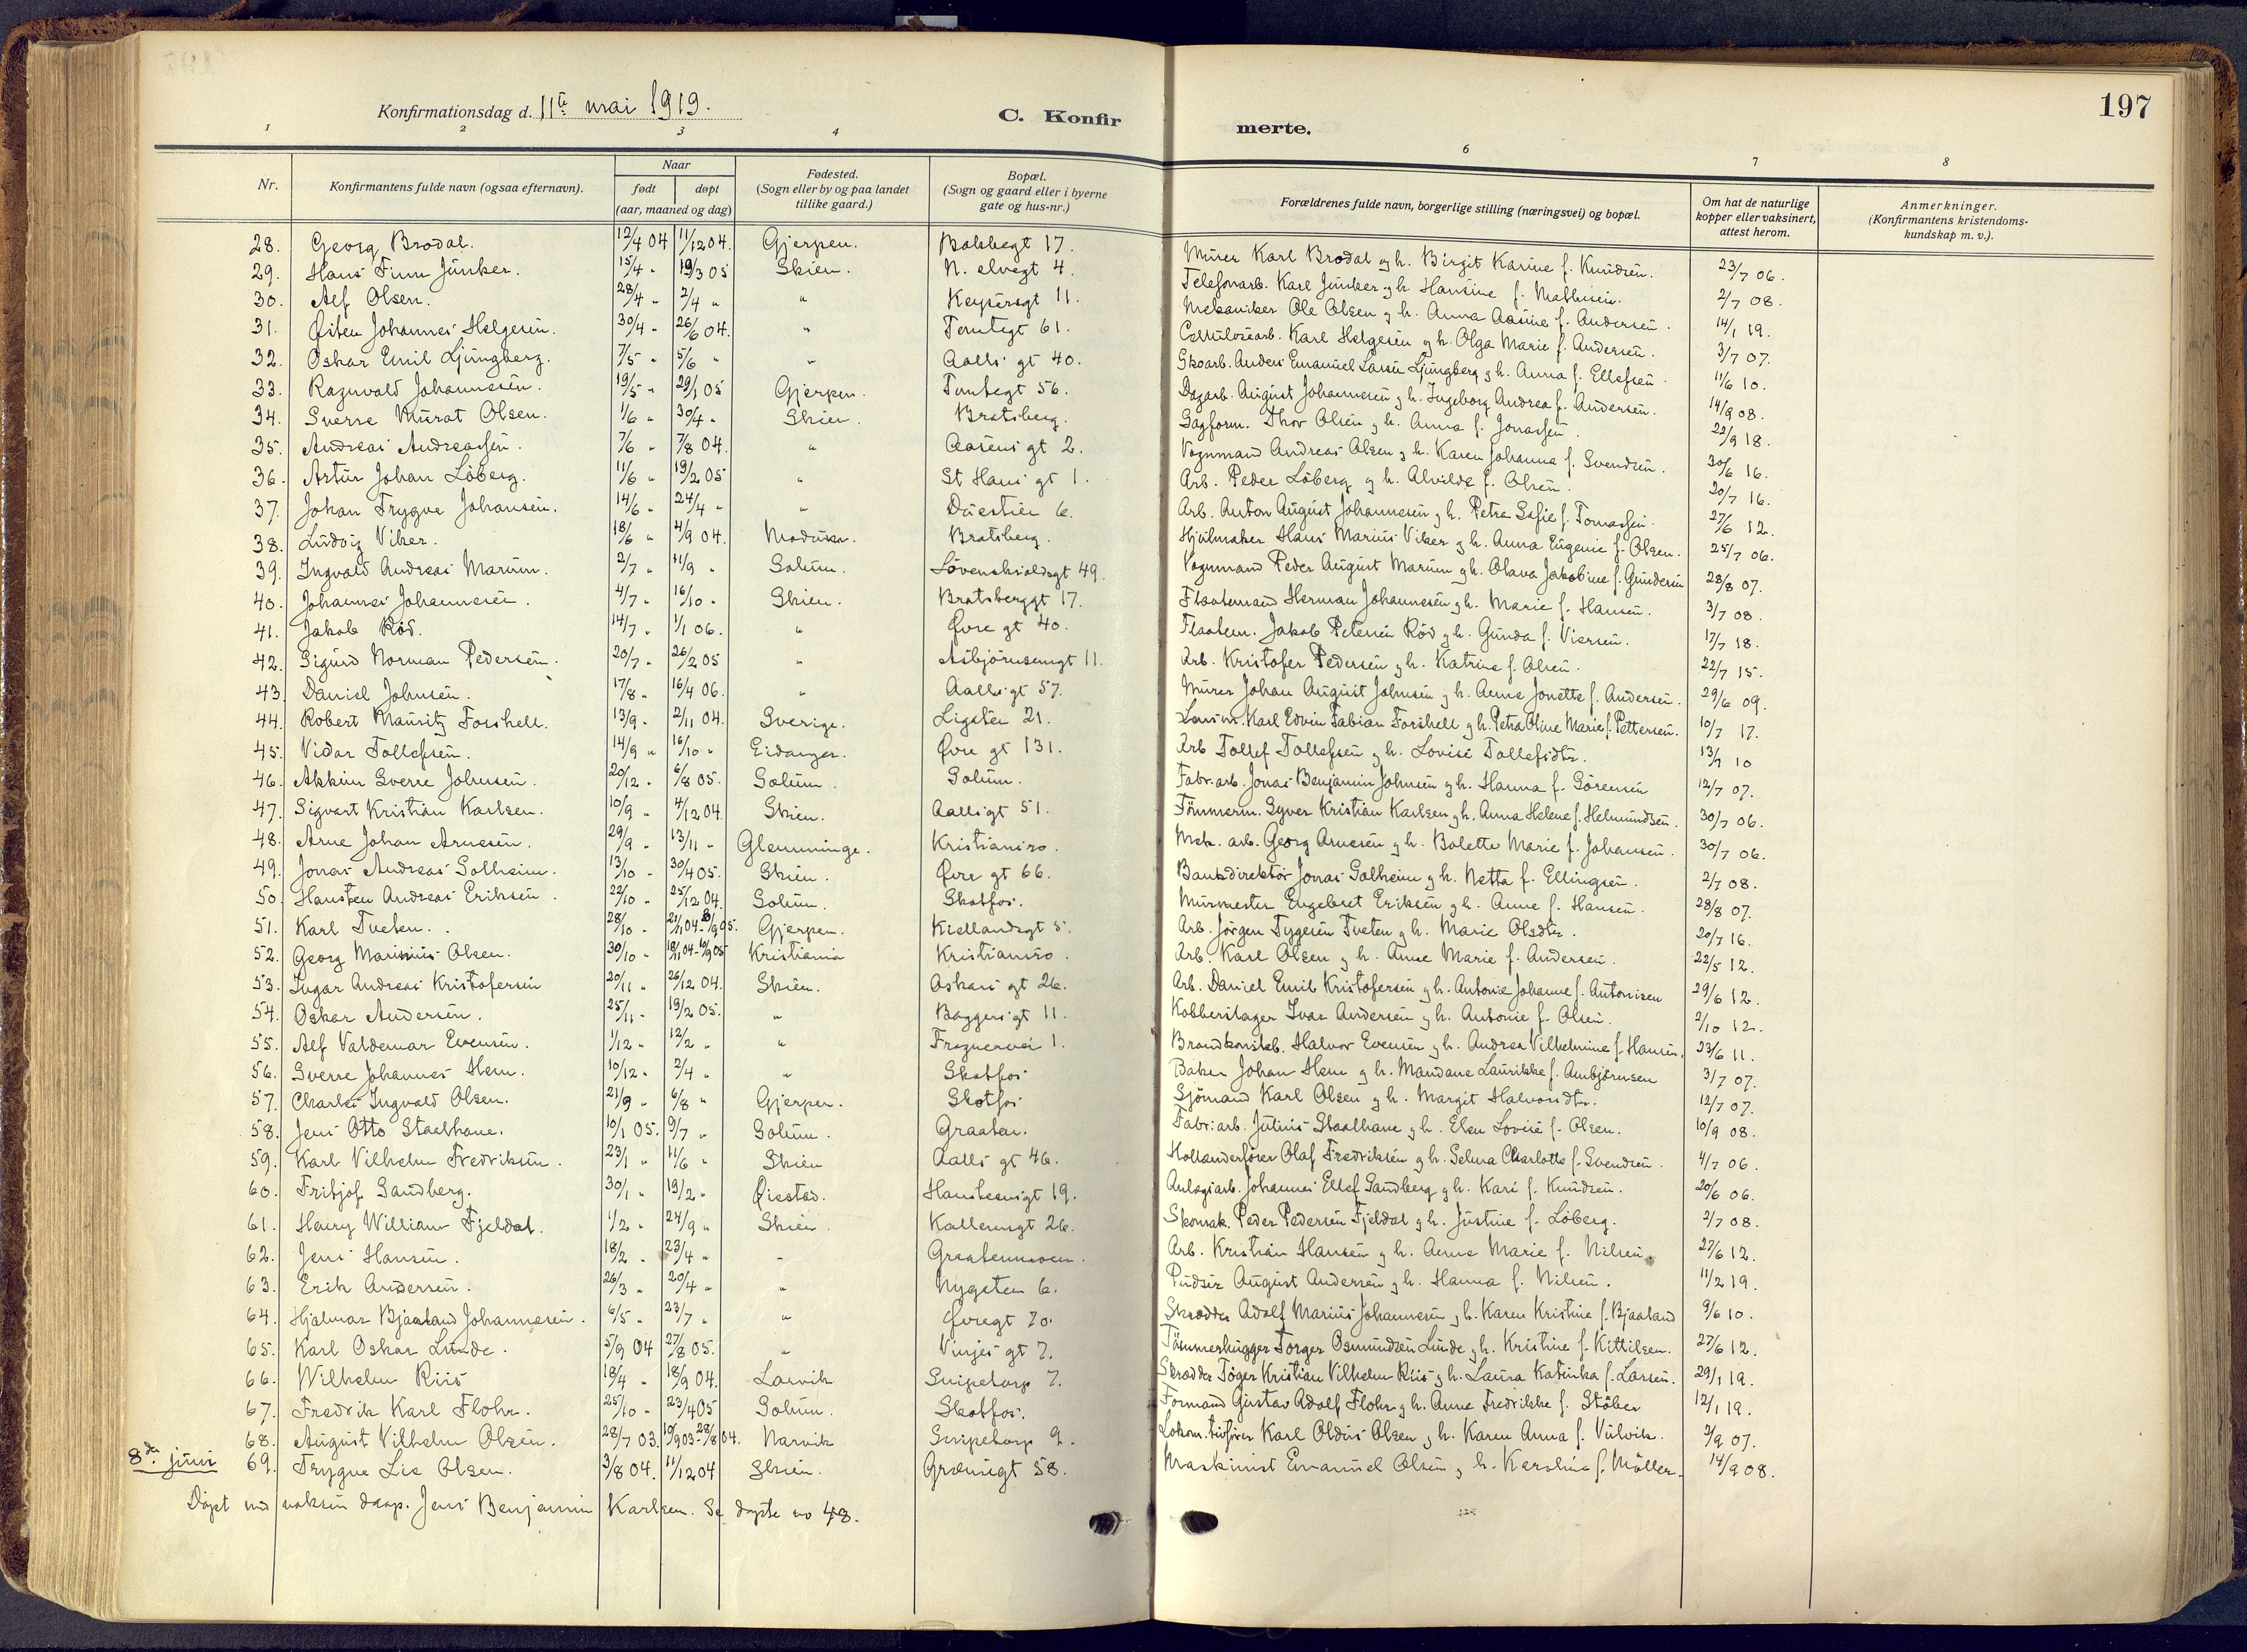 197
Konfirmationsdag d. 11te mai 1919.
C. Konfirmerte.
1 2 3 4 6 7 8
Nr.
Konfirmantens fulde navn (ogsaa efternavn).
Naar
født døpt
(aar, maaned og dag)
Fødested.
(Sogn eller by og paa landet
tillike gaard.)
Bopæl.
(Sogn og gaard eller i byerne
gate og hus-nr.)
Forældrenes fulde navn, borgerlige stilling (næringsvei) og bopæl.
Om hat de naturlige
kopper eller vaksinert,
attest herom.
Anmerkninger.
(Konfirmantens kristendoms-
kundskap m. v.).
28. Georg Brodal. 12/4 04 11/12 04. Gjerpen. Bølebegt 17. Murer Karl Brodal og h. Birgit Karine f. Knudsen. 23/7 06.
29. Hans Finn Junker. 15/4 " 19/3 05 Skien. N. elvegt 4. Telefonarb. Karl Junker og h. Hansine f. Mathisen. 2/7 08.
30. Alf Olsen. 28/4 " 2/4 " " Keysersgt 11. Mekaniker Ole Olsen og h. Anna Aasine f. Andersen. 14/1 19.
31. Øisten Johannes Helgesen. 30/4 " 26/6 04. " Tomtegt 61. Cellulosearb. Karl Helgesen og h. Olga Marie f. Andersen. 3/7 07.
32. Oskar Emil Ljungberg. 7/5 " 5/6 " " Aalls gt 40. Skoarb. Anders Emanuel Larsen Ljungberg og h. Anna f. Ellefsen. 11/6 10.
33. Ragnvald Johannesen. 19/5 " 29/1 05 Gjerpen. Tomtegt 56. Dagarb. August Johannesen og h. Ingeborg Andrea f. Andersen. 14/9 08.
34. Sverre Murat Olsen. 1/6 " 30/4 " Skien. Bratsberg. Sagform. Thor Olsen og h. Anna f. Jonassen. 22/9 18.
35. Andreas Andreassen. 7/6 " 7/8 04. " Aasens gt 2. Vognmand Andreas Olsen og h. Karen Johanna f. Svendsen. 30/6 16.
36. Artur Johan Löberg. 11/6 " 19/2 05 " St Hans gt 1. Arb. Peder Löberg og h. Alvilde f. Olsen. 20/7 16.
37. Johan Trygve Johansen. 14/6 " 24/4 " " Duestien 6. Arb. Anton August Johannesen og h. Petra Sofie f. Tomassen. 27/6 12.
38. Ludvig Viker. 18/6 " 4/9 04. Modum. Bratsberg. Hjulmaker Hans Marius Viker og h. Anna Eugenie f. Olsen. 25/7 06.
39. Ingvald Andreas Marum. 2/7 " 11/9 " Solum. Lövenskioldsgt 49. Vognmand Peder August Marum og h. Olava Jakobine f. Gundersen 28/8 07.
40. Johannes Johannesen. 4/7 " 16/10 " Skien. Bratsberggt 17. Fløtemand Herman Johannesen og h. Marie f. Hansen. 3/7 08.
41. Jakob Röd. 14/7 " 1/1 06. " Øvre gt 40. Flaatem. Jakob Petersen Röd og h. Gunda f. Viersen. 17/7 18.
42. Sigurd Norman Pedersen. 20/7 " 26/2 05 " Asbjörnsensgt 11. Arb. Kristofer Pedersen og h. Katrine f. Olsen. 22/7 15.
43. Daniel Johnsen. 17/8 " 16/4 06. " Aalls gt 57. Murer Johan August Johnsen og h. Anne Jonette f. Andersen. 29/6 09.
44. Robert Mauritz Forshell. 13/9 " 2/11 04. Sverige. Ligaten 21. Karl Edvin Fabian Forshell og h. Petra Oline Marie f. Pettersen. 10/7 17.
45. Vidar Tollefsen. 14/9 " 16/10 " Eidanger. Øvre gt 131. Arb Tollef Tollefsen og h. Lovise Tollefsdtr. 13/7 10
46. Akkim Sverre Johnsen. 20/12 " 6/8 05. Solum. Solum. Fabr.arb. Jonas Benjamin Johnsen og h. Hanna f. Sörensen 12/7 07.
47. Sigvart Kristian Karlsen. 10/9 " 4/12 04. Skien. Aallsgt 51. Tömmerm. Syver Kristian Karlsen og h. Anna Helene f. Helmundsen. 30/7 06.
48. Arne Johan Arnesen. 29/9 " 13/11 " Glemminge. Kristiansro. Mek. arb. Georg Arnesen og h. Bolette Marie f. Johansen. 30/7 06.
49. Jonas Andreas Solheim. 13/10 " 30/4 05. Skien. Øvre gt 66. Bankdirektör Jonas Solheim og h. Netta f. Ellingsen. 2/7 08.
50. Hansten Andreas Eriksen. 22/10 " 25/12 04. Solum. Skotfos. Murmester Engebret Eriksen og h. Anne f. Hansen. 28/8 07.
51. Karl Tveten. 28/10 " 21/11 04 - 05. Gjerpen. Kiellandsgt 5. Arb. Jörgen Tygesen Tveten og h. Marie Olsdtr. 20/7 16.
52. Georg Marinius Olsen. 30/10 " 18/11 04 - 10/9 05 Kristiania Kristiansro. Arb. Karl Olsen og h. Anne Marie f. Andersen. 22/5 12.
53. Ingar Andreas Kristofersen 20/11 " 26/12 04. Skien. Oskars gt 26. Arb. Daniel Emil Kristofersen og h. Antonie Johanne f. Antonisen 29/6 12.
54. Oskar Andersen. 25/11 " 19/2 05. " Baggersgt 11. Kobberslager Ivar Andersen og h. Antonie f. Olsen. 2/10 12.
55. Alf Valdemar Evensen. 1/12 " 12/2 " " Frognervei 1. Brandkonstab. Halvor Evensen og h. Andrea Vilhelmine f. Hansen. 23/6 11.
56. Sverre Johannes Hem. 10/12 " 2/4 " " Skotfos Baker Johan Hem og h. Mandane Laurikke f. Ambjörnsen 3/7 07.
57. Charles Ingvald Olsen. 21/9 " 6/8 " Gjerpen. Skotfos Sjömand Karl Olsen og h. Margit Halvorsdtr. 12/7 07.
58. Jens Otto Staalhane. 10/1 05. 9/7 " Solum. Graaten. Fabr.arb. Julius Staalhane og h. Elen Lovise f. Olsen. 10/9 08.
59. Karl Vilhelm Fredriksen. 23/1 " 11/6 " Skien Aalls gt 46. Hollanderförer Olaf Fredriksen og h. Selma Charlotte f. Svendsen. 4/7 06.
60. Fritjof Sandberg. 30/1 " 19/2 " Øiestad. Hansteensgt 19. Anlægsarb. Johannes Ellef Sandberg og h. Kari f. Knudsen. 20/6 06.
61. Harry William Fjeldal. 1/2 " 24/9 " Skien. Kallerengt 26. Skomak. Peder Pedersen Fjeldal og h. Justine f. Löberg. 2/7 08.
62. Jens Hansen. 18/2 " 23/4 " - Graatenmoen. Arb. Kristian Hansen og h. Anna Marie f. Nilsen. 27/6 12.
63. Erik Andersen. 26/3 " 20/4 " " Nygaten 6. Pudser August Andersen og h. Hanna f. Nilsen. 11/2 19.
64. Hjalmar Bjaaland Johannesen. 6/5 " 23/7 " " Øvregt 70. Skrædder Adolf Marius Johannesen og h. Karen Kristine f. Bjaaland 9/6 10.
65. Karl Oskar Lunde. 5/9 04 27/8 05. " Vinjes gt 7. Tömmerhugger Torger Osmundsen Lunde og h. Kristine f. Kittilsen. 27/6 12.
66. Wilhelm Riis 18/4 " 18/9 04. Larvik Snipetorp 7. Skrædder Töger Kristian Vilhelm Riis og h. Laura Katinka f. Larsen. 29/1 19.
67. Fredrik Karl Flohr. 25/10 " 23/4 05 Solum. Skotfos. Formand Gustav Adolf Flohr og h. Anne Fredrikke f. Stöber 12/1 19.
68. August Vilhelm Olsen. 28/7 03. 10/9 03 - 28/8 04. Narvik Snipetorp 9. Lokom.tivförer Karl Oldus Olsen og h. Karen Anna f. Vulvik. 2/9 07.
8de juni 69. Trygve Lie Olsen. 3/8 04. 11/12 04 Skien. Grænsegt 58. Maskinist Emanuel Olsen og h. Karoline f. Möller. 14/9 08.
Döpt ved voksen daap. Jens Benjamin Karlsen. Se döpte no 48.